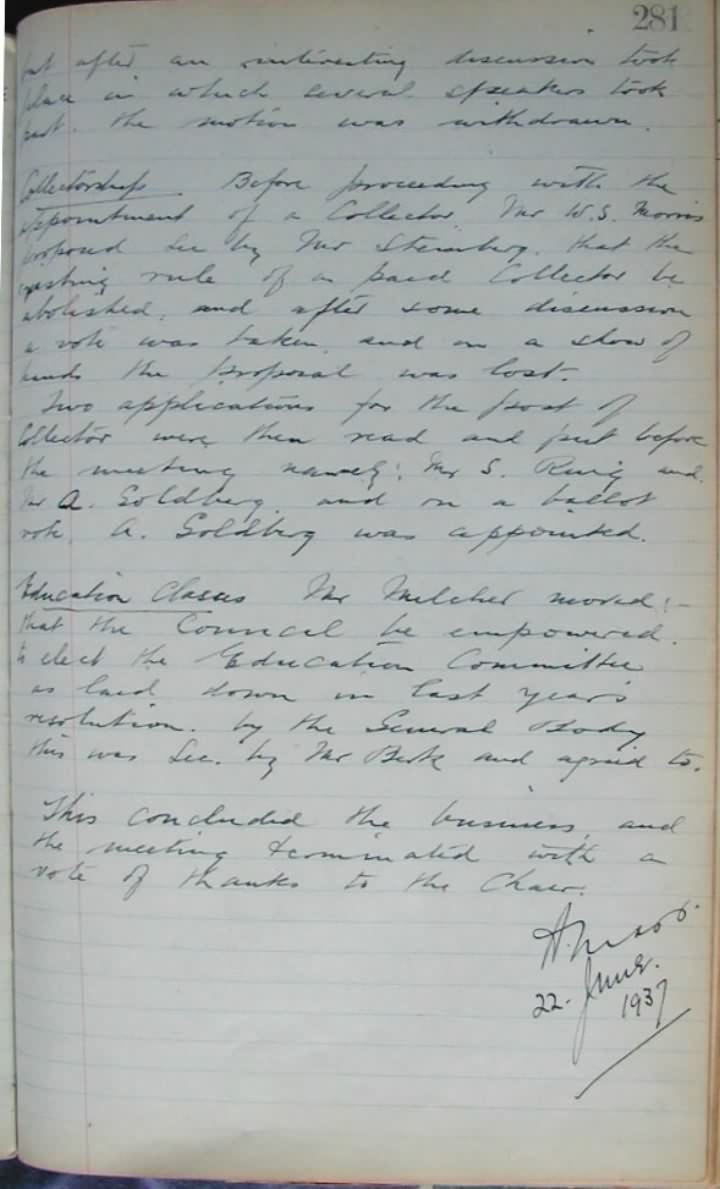 281
but after an interesting discussion took
place in which several speakers took
part. the motion was withdrawn.
Collectorship. Before proceeding with the
appointment of a Collector, Mr W.S. Morris
proposed Sec by Mr Steinberg. that the
existing rule of a paid Collector be
abolished, and after some discussion
a vote was taken, and on a show of
hands the proposal was lost.
Two applications for the post of
Collector were then read and put before
the meeting namely: Mr S. and
Mr A. Goldberg and on a ballot
vote, A. Goldberg was appointed.
Education Classes Mr Melcher moved:-
that the Council be empowered.
to elect the Education Committee
as laid down in last year's
resolution. by the General Body
this was Sec. by Mr Berk and agreed to.
This concluded the business, and
the meeting terminated with a
vote of thanks to the Chair.
22. June.
1937